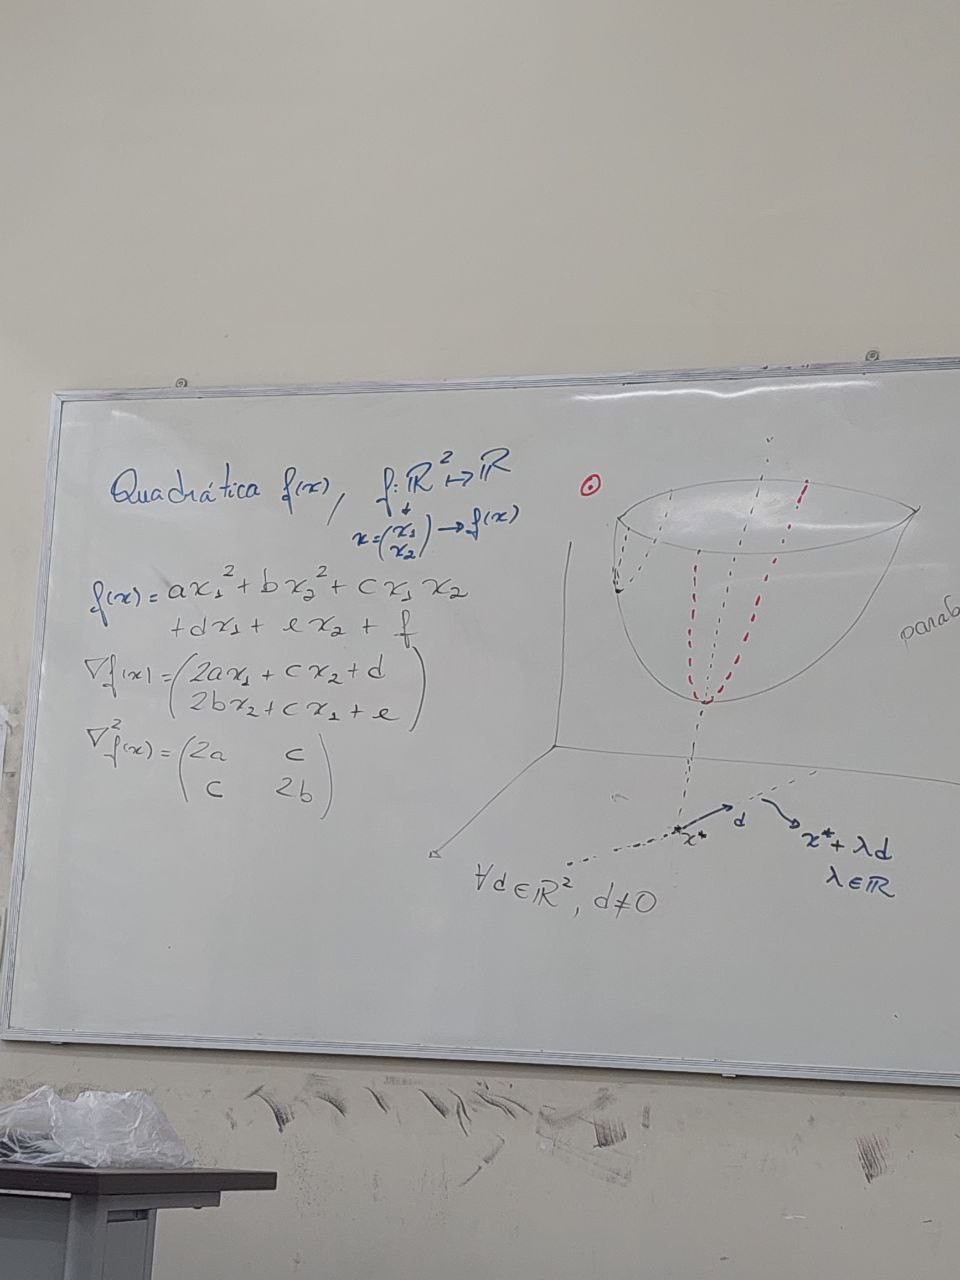 Quadrática f(x), f: ℝ² ↦ ℝ
x = (x₁ x₂) → f(x)
f(x) = ax₁² + bx₂² + cx₁x₂
+ dx₁ + ex₂ + f
∇f(x) = (2ax₁ + cx₂ + d
2bx₂ + cx₁ + e)
∇²f(x) = (2a c
c 2b)
parab
x*
d
x* + λd
λ ∈ ℝ
∀d ∈ ℝ², d ≠ 0